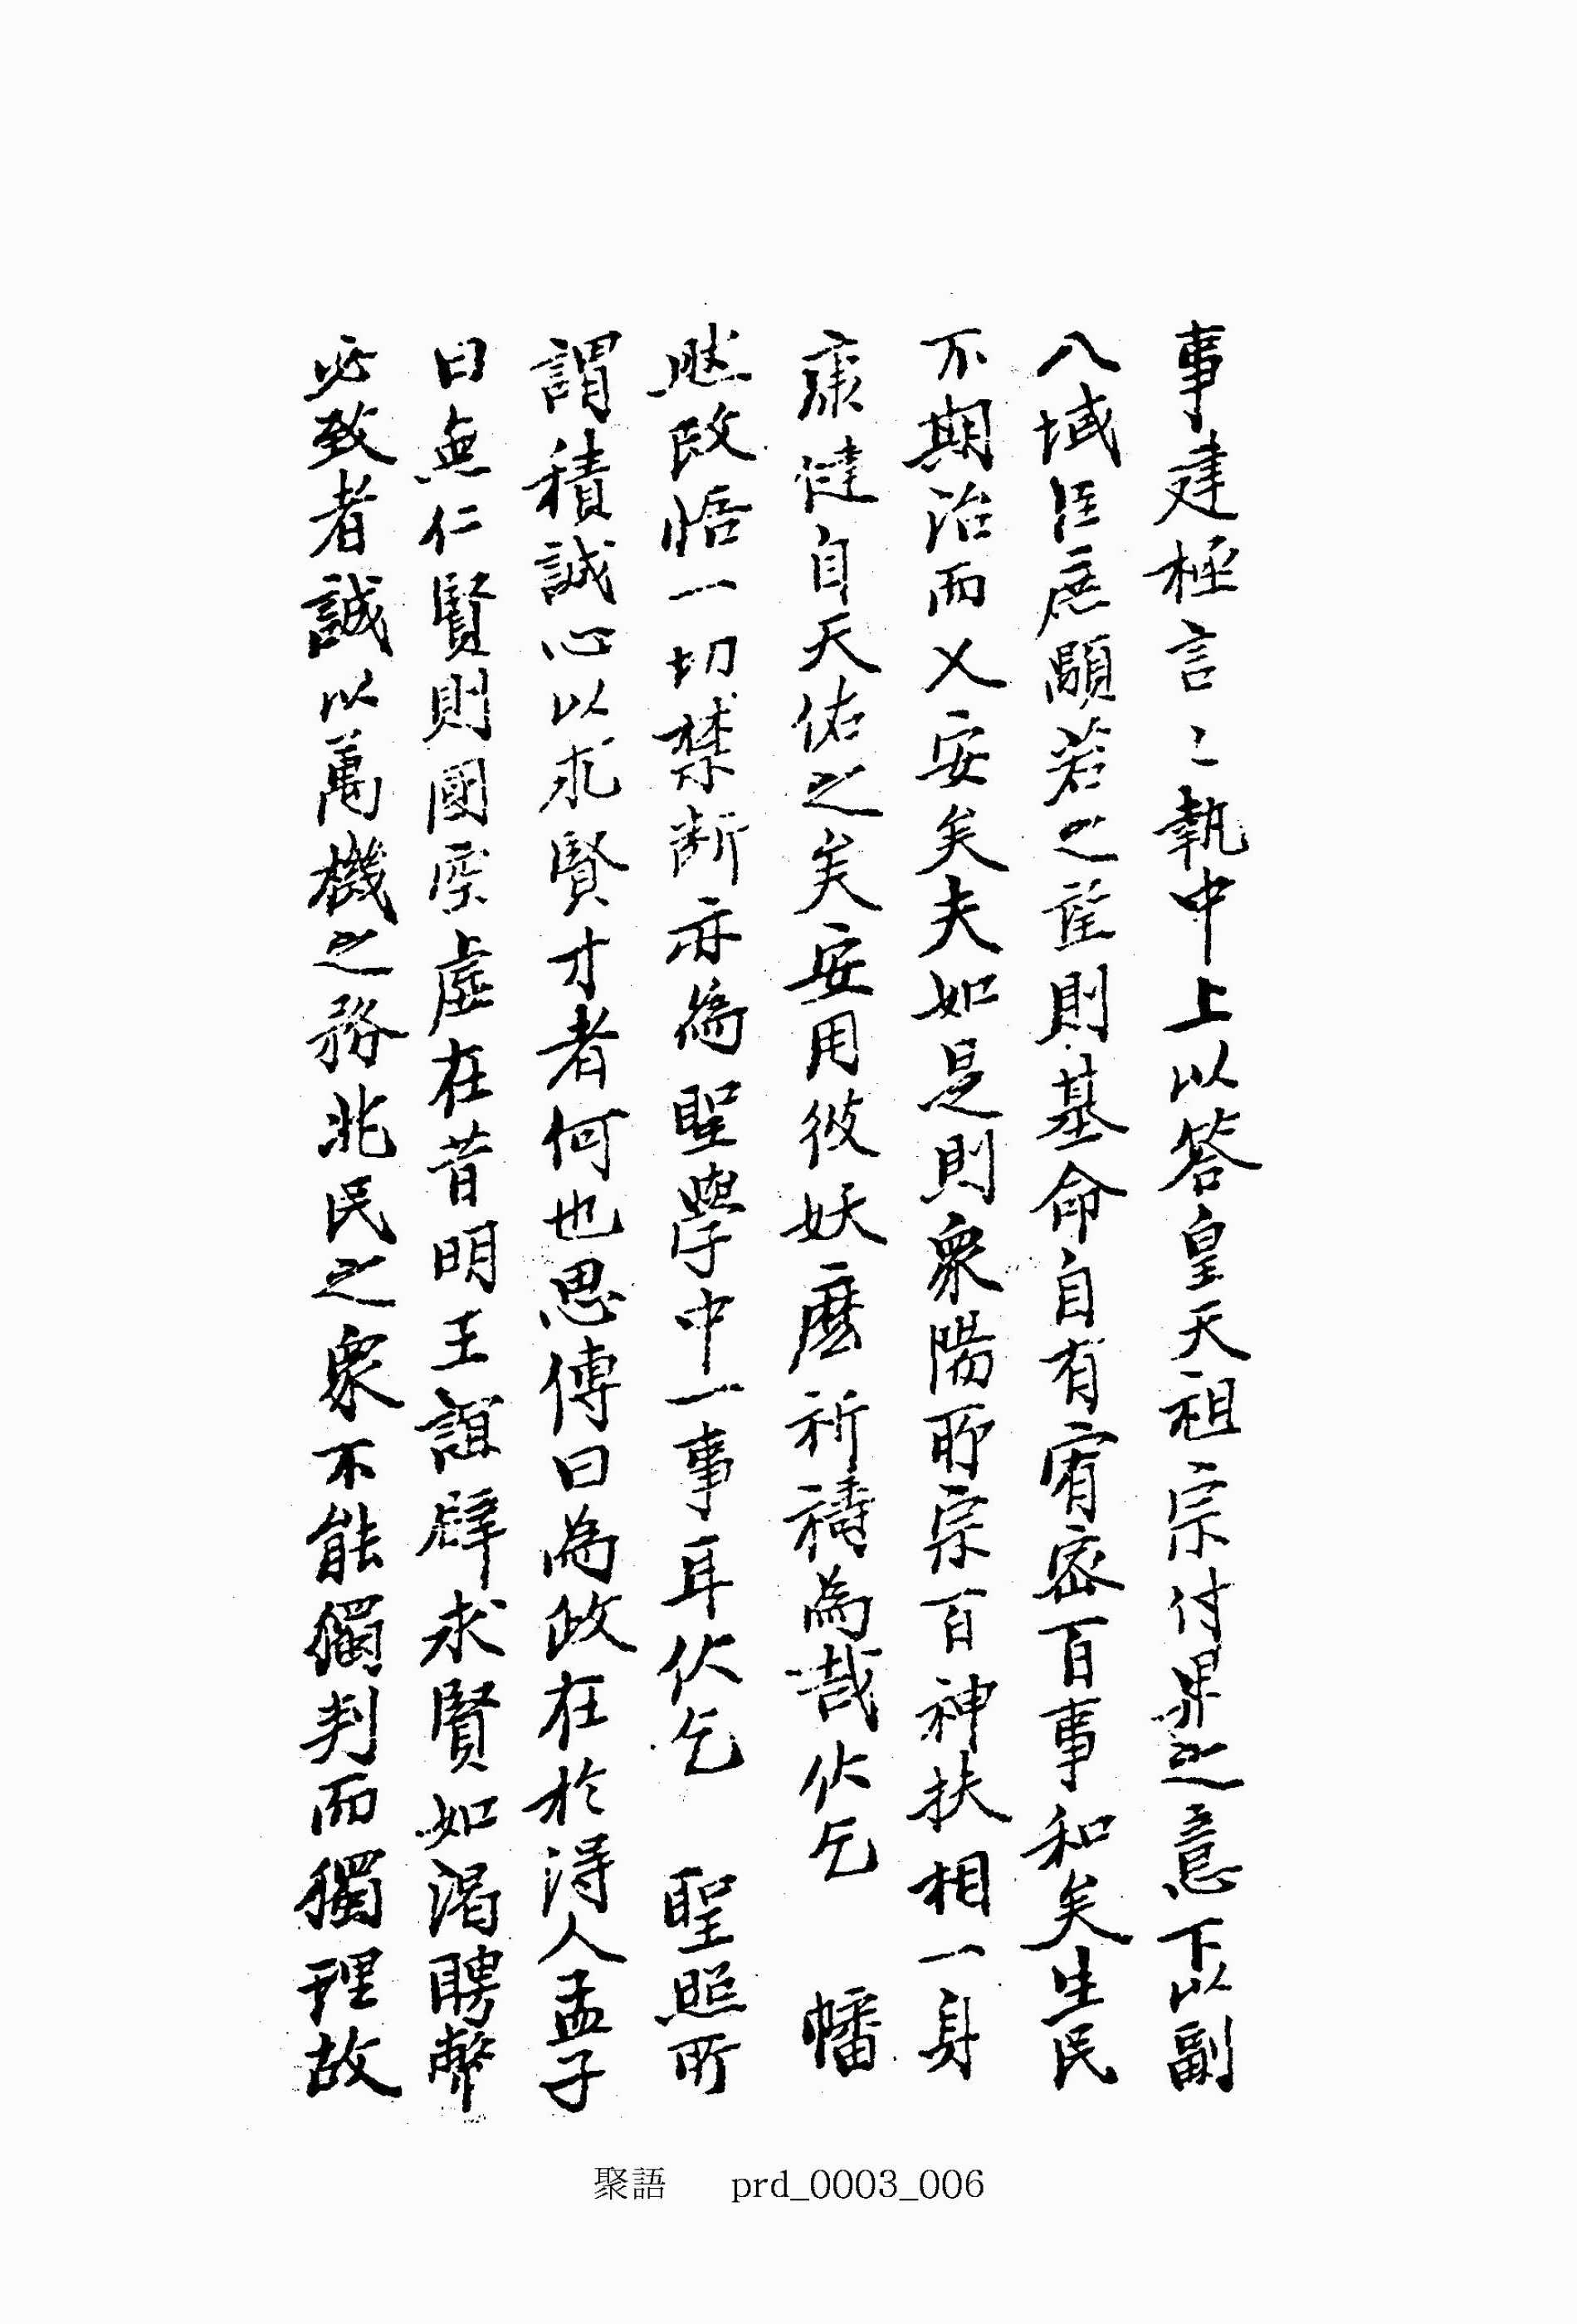 事建極言〻執中上以答皇天祖宗付畀之意下以副
八域臣庶顒若之望則基命自有宥密百事和矣生民
不期治而乂安矣夫如是則衆陽所宗百神扶相一身
康健自天佑之矣安用彼妖麽祈禱為哉伏乞 幡
然改悟一切禁斷亦為聖學中一事耳伏乞 聖照所
謂積誠心以求賢才者何也思傳曰為政在於得人孟子
曰無仁賢則國空虛在昔明王誼辟求賢如渴聘幣
必致者誠以萬機之務兆民之衆不能獨判而獨理故
聚語 prd_0003_006